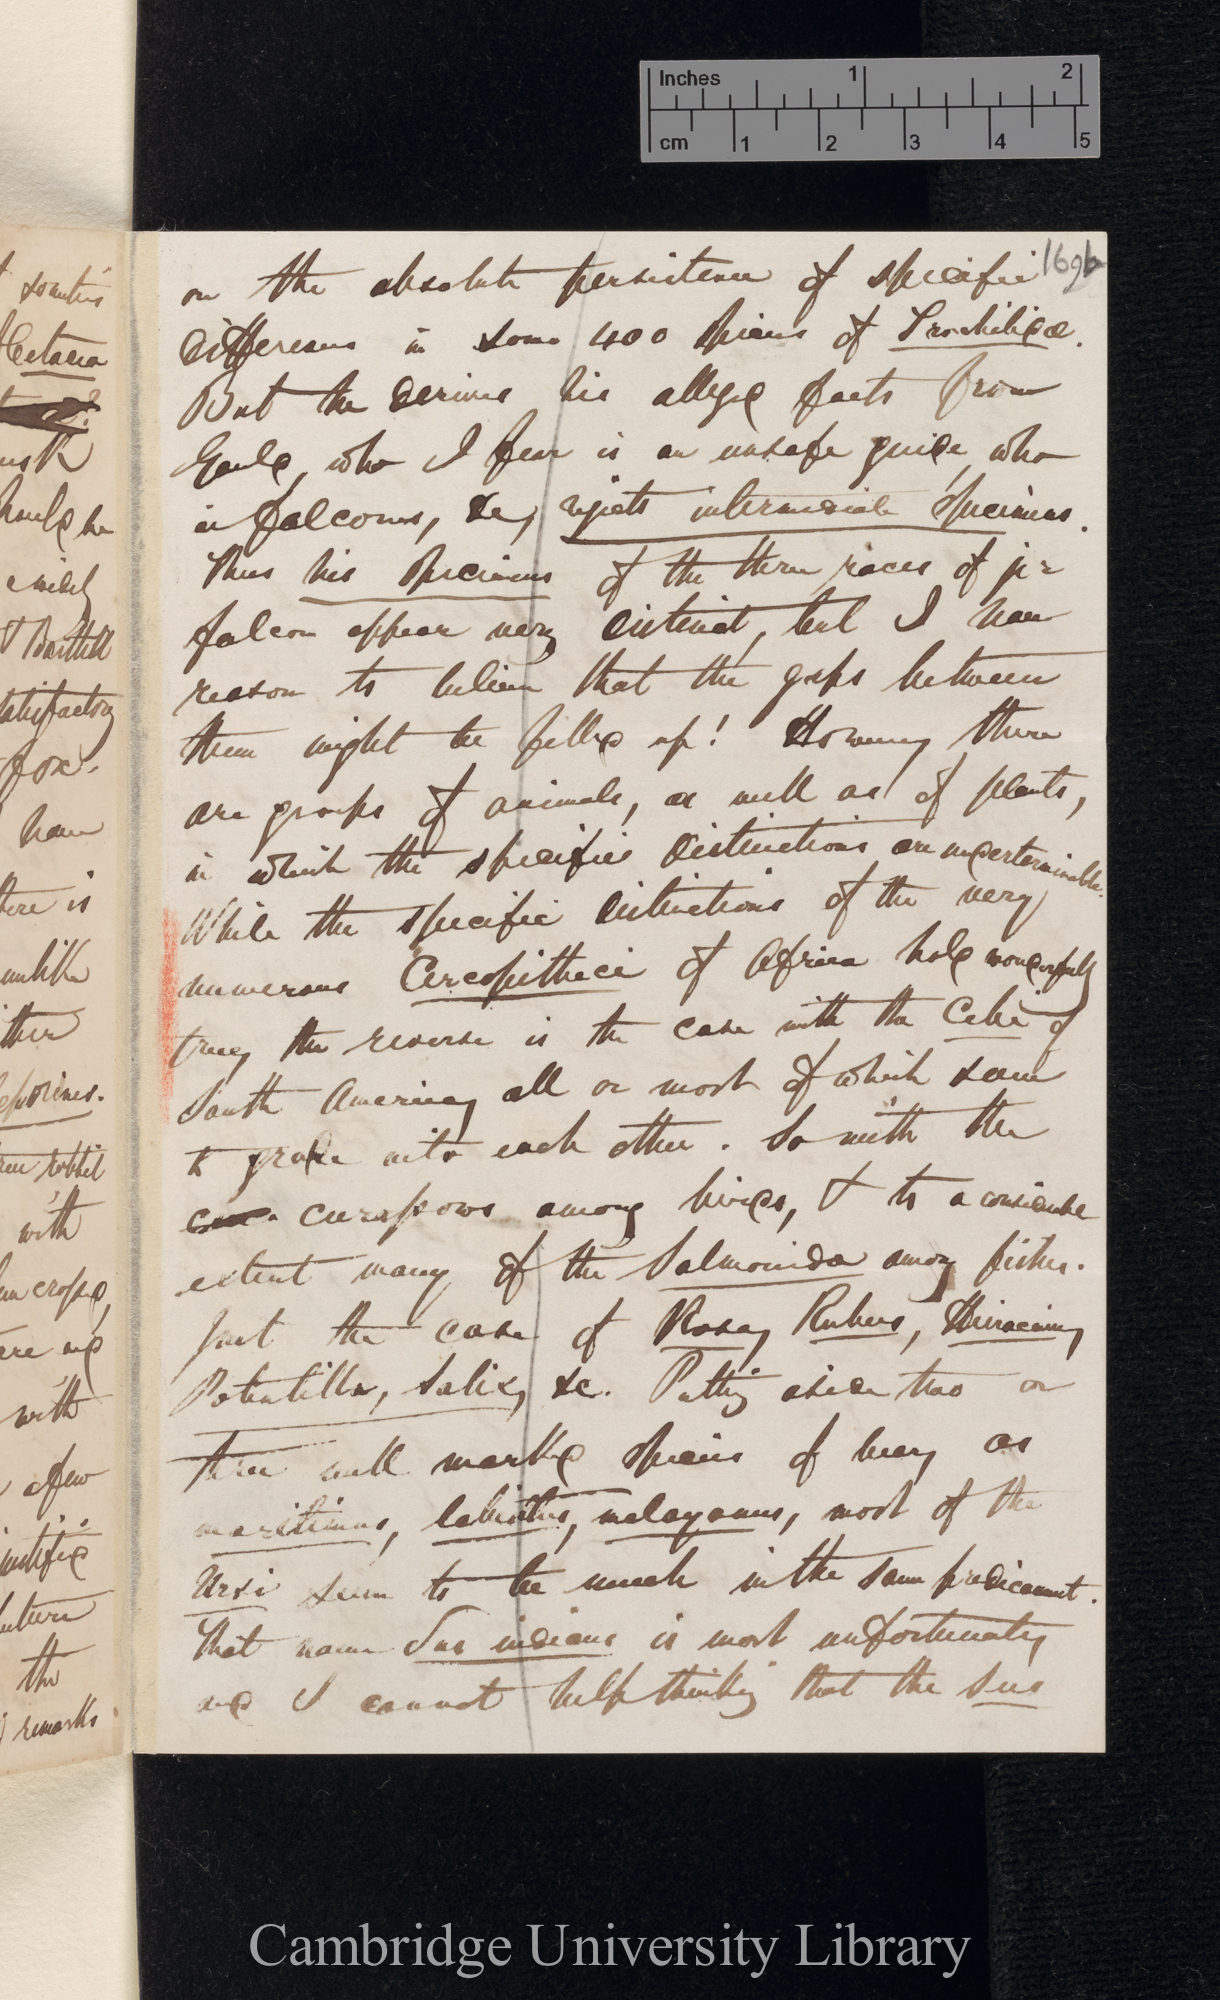 Inches 1 2
cm 1 2 3 4 5
169b
on the absolute persistence of specific
differences in some 400 species of Trochilidæ.
But he derives his alleged facts from
Gould, who I fear is an unsafe guide, who
in falcons, &c, rejects intermediate specimens.
Thus his specimens of the three races of jer
falcon appear very distinct, but I have
reason to believe that the gaps between
them might be filled up! However, there
are groups of animals, as well as of plants,
in which the specific distinctions are undeterminable.
While the specific distinctions of the very
numerous Cercopitheci of Africa hold wonderfully
true, the reverse is the case with the Cebi of
South America, all or most of which seem
to grade into each other. So with the
curassows among birds, & to a considerable
extent many of the Salmonidæ among fishes.
Just the case of Rosa, Rubus, Hieracium,
Potentilla, Salix, &c. Putting aside two or
three well marked species of bear, as
maritimus, labiatus, malayanus, most of the
Ursi seem to be much in the same predicament.
That name Sus indicus is most unfortunate,
and I cannot help thinking that the Sus
Cetacea
T Bartlett
satisfactory
fox.
have
there is
unlike
with
with
a few
the
remarks
Cambridge University Library